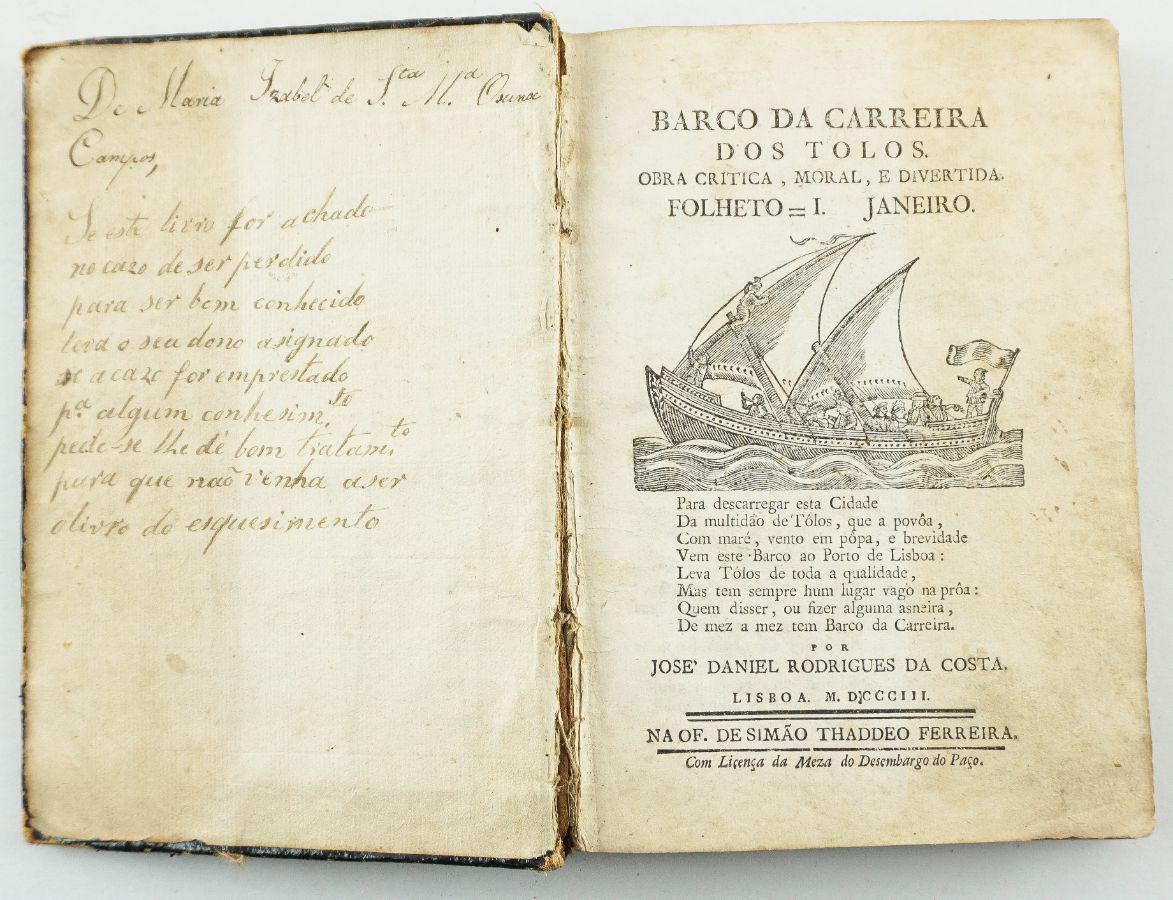 De Maria Izabel de S.ta M.a Osuna
Campos,
Se este livro for achado
no cazo de ser perdido
para ser bem conhecido
leva o seu dono asignado
se a cazo for emprestado
p.a algum conhesim.to
pede-se lhe dê bom tratam.to
para que naõ venha a ser
o livro do esquesimento
BARCO DA CARREIRA
DOS TOLOS.
OBRA CRITICA , MORAL , E DIVERTIDA.
FOLHETO = I. JANEIRO.
Para descarregar esta Cidade
Da multidão de Tólos , que a povôa ,
Com maré , vento em pôpa , e brevidade
Vem este Barco ao Porto de Lisboa :
Leva Tólos de toda a qualidade ,
Mas tem sempre hum lugar vago na prôa :
Quem disser , ou fizer alguma asneira ,
De mez a mez tem Barco da Carreira.
POR
JOSE' DANIEL RODRIGUES DA COSTA.
LISBOA. M. DCCCIII.
NA OF. DE SIMÃO THADDEO FERREIRA.
Com Liçença da Meza do Desembargo do Paço.